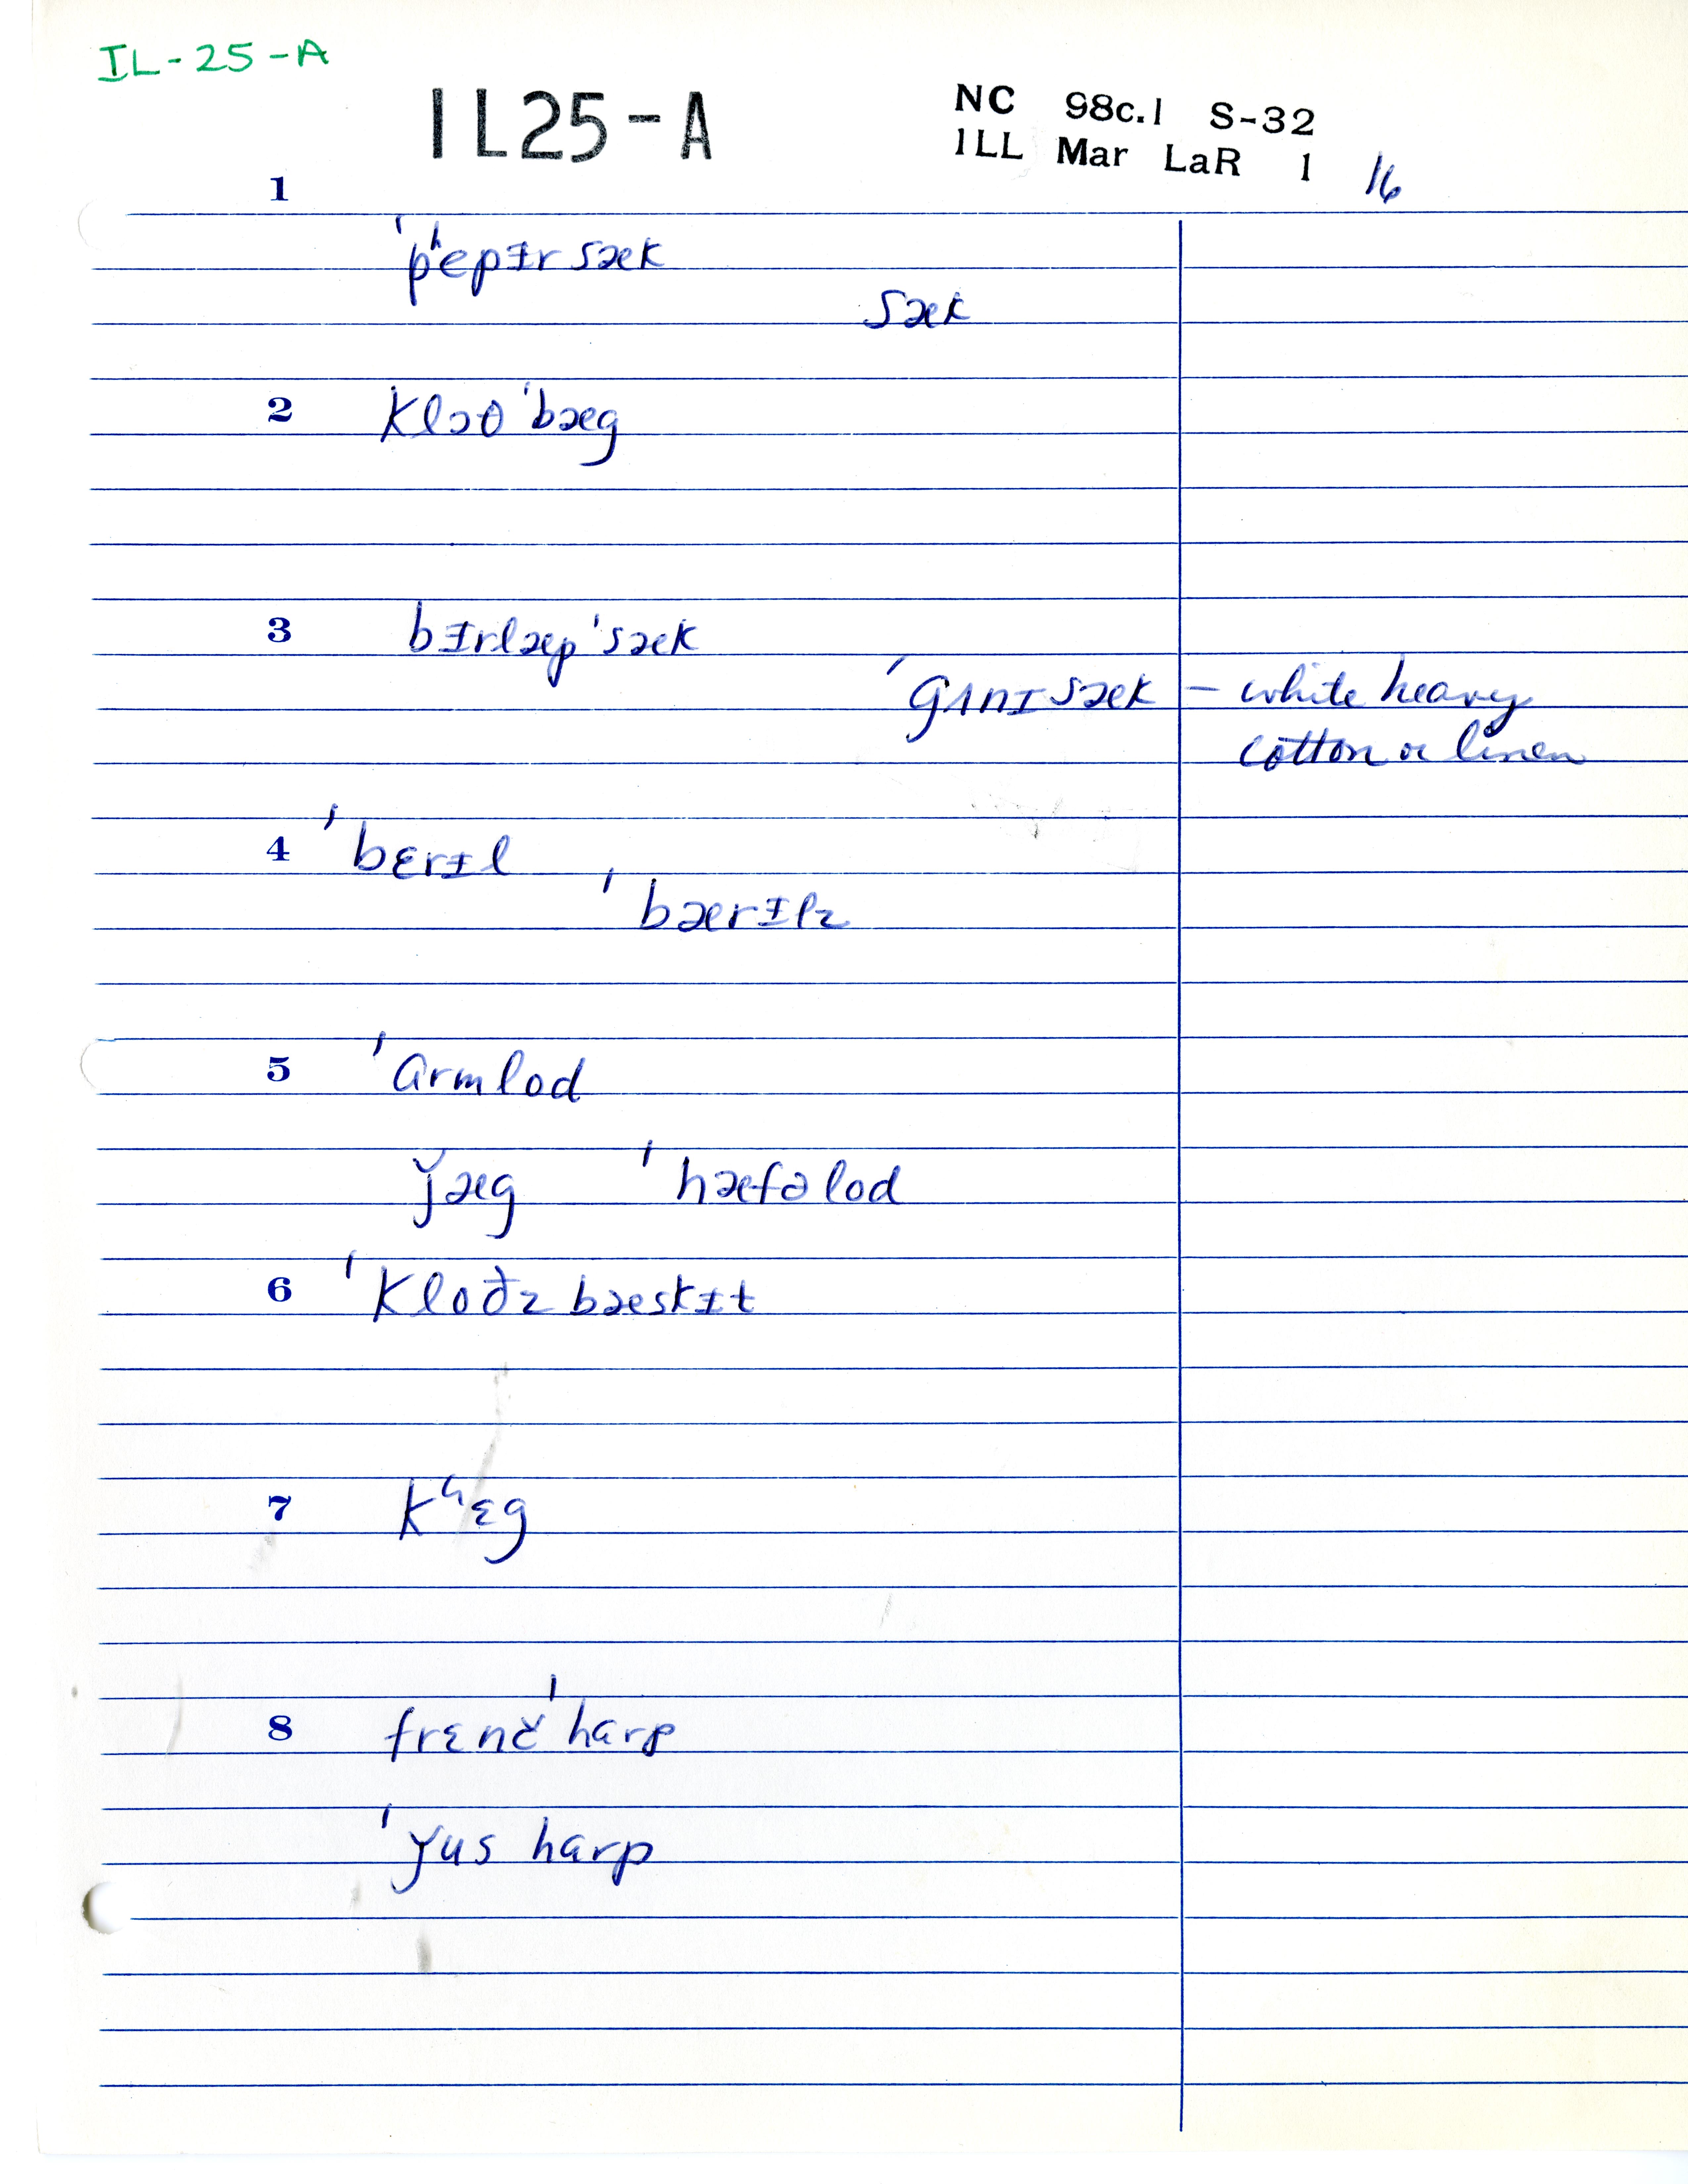 IL-25-A
1L25-A
NC 98c.1 S-32
1LL Mar LaR 1 16
1
ˈpʰepᵻr sæk
sæk
2 klɔθ ˈbæg
3 bᵻrlæp ˈsæk
ˈgʌnɪ sæk – white heavy
cotton or linen
4 ˈbɛrᵻl
ˈbærᵻlz
5 ˈɑrmlod
ǰæg ˈhæfəlod
6 ˈkloðz bæskᵻt
7 kʰɛg
8 frɛnč ˈhɑrp
ˈǰus hɑrp